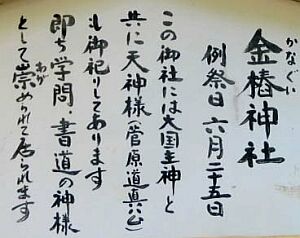 かなぐい
金椿神社
例祭日 六月二十五日
この御社には大国主神と
共に天神様(菅原道真公)
も御祀りしてあります
即ち学問・書道の神様
あが
として崇められて居られます